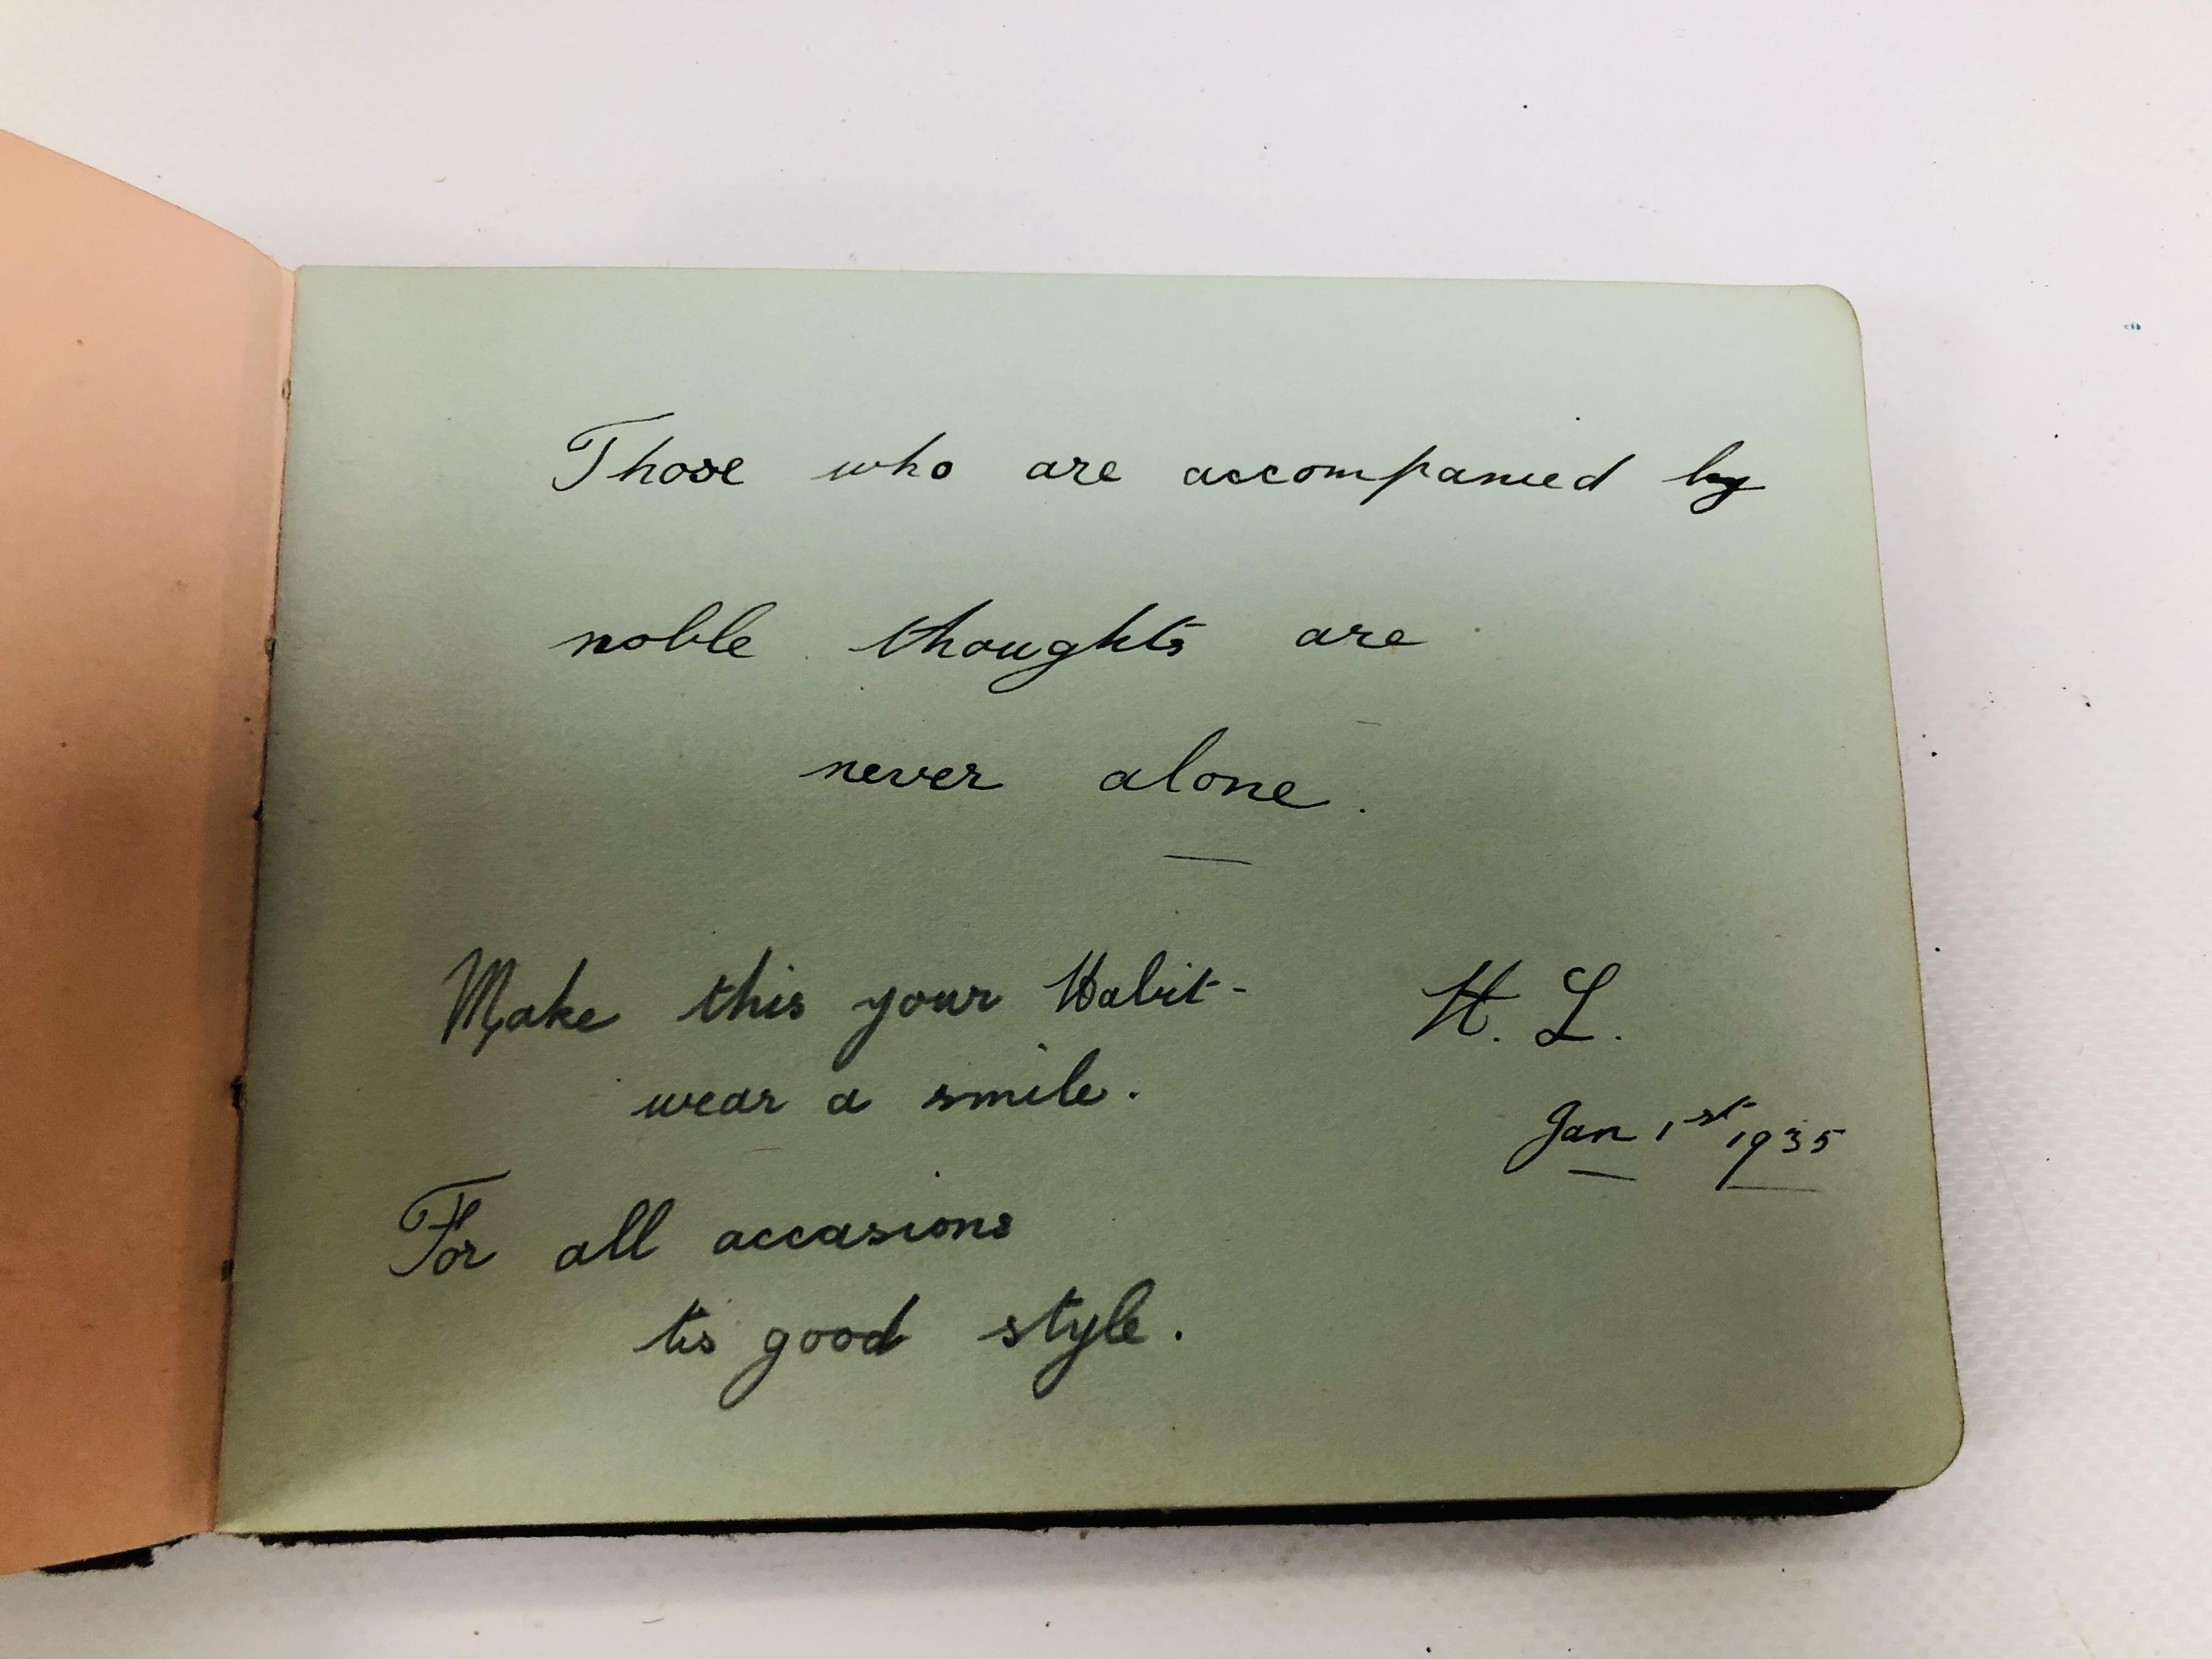 Those who are accompanied by
noble thoughts are
never alone.
Make this your Habit-
wear a smile.
For all accasions
tis good style.
H. L.
Jan 1st 1935